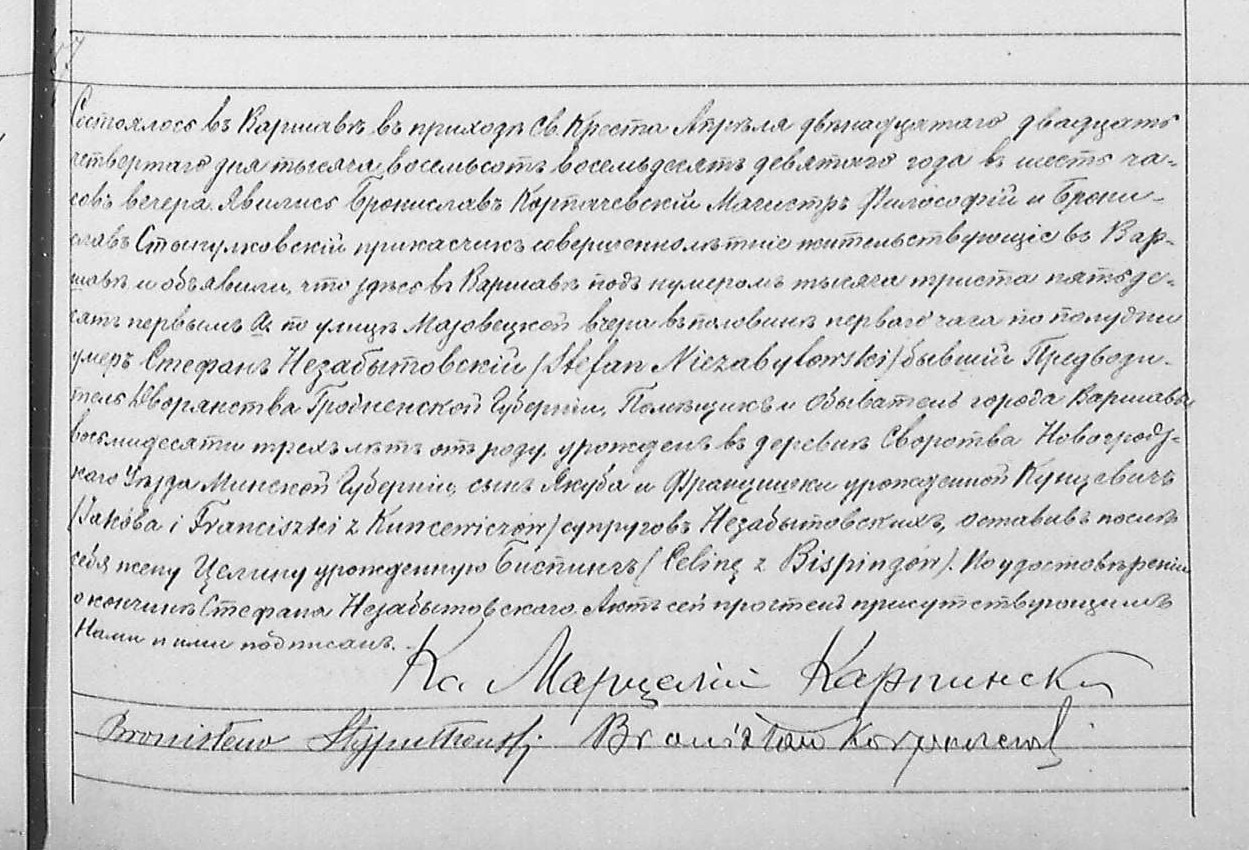 Состоялось въ Варшавѣ въ приходѣ Св. Креста Апрѣля двѣнадцатаго двадцать
четвертаго дня тысяча восемьсотъ восемьдесятъ девятаго года въ шесть ча-
совъ вечера. Явились Брониславъ Корпачевскій Магистръ Философіи и Брони-
славъ прикасчикъ совершеннолѣтніе жительствующіе въ Вар-
шавѣ и объявили, что здѣсь въ Варшавѣ подъ нумеромъ тысяча триста пятьде-
сятъ первымъ а, по улицѣ Мазовецкой вчера въ половинѣ перваго часа по полудни
умеръ Стефанъ Незабытовскій (Stefan Niezabytowski) бывшій Предводи-
тель Дворянства Гродненской Губерніи, Помѣщикъ и Обыватель города Варшавы
восьмидесяти трехъ лѣтъ отъ роду, урожденъ въ деревнѣ Своротва Новогрод-
скаго Уѣзда Минской Губерніи, сынъ Якуба и Францишки урожденной Кунцевичъ
(Jakóba i Franciszki z Kuncewiczów) супруговъ Незабытовскихъ, оставивъ послѣ
себя жену Целину урожденную Биспингъ (Celinę z Bispingów). По удостовѣреніи
о кончинѣ Стефана Незабытовскаго. Актъ сей прочтенъ присутствующимъ
Нами и ими подписанъ.
Кс. Марцелій Карпински
Bronisław Stypułkowski Bronisław